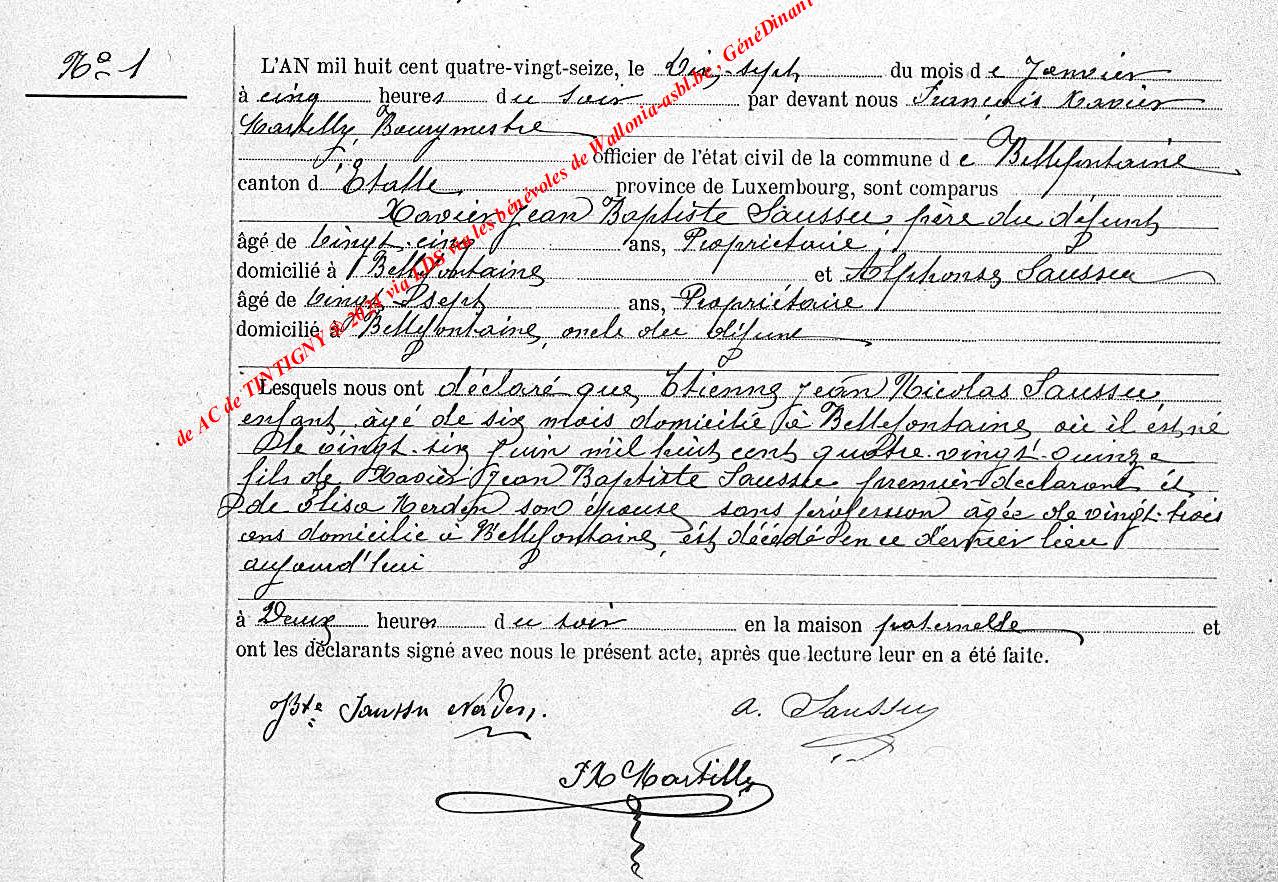 N° 1
L'AN mil huit cent quatre-vingt-seize, le Dix-sept du mois de Janvier
à cinq heures du soir par devant nous François Xavier
Martilly, Bourgmestre
officier de l'état civil de la commune de Bellefontaine
canton d'Etalle province de Luxembourg, sont comparus
Xavier Jean Baptiste Saussu, frère du défunt
âgé de vingt-cinq ans, Propriétaire,
domicilié à Bellefontaine et Alphonse Saussu
âgé de vingt sept ans, Propriétaire
domicilié à Bellefontaine, oncle du défunt
Lesquels nous ont déclaré que Etienne Jean Nicolas Saussu,
enfant âgé de six mois domicilié à Bellefontaine où il est né
le vingt-six Juin mil huit cent quatre-vingt-quinze
fils de Xavier Jean Baptiste Saussu premier déclarant et
de Elisa Nerden son épouse sans profession âgée de vingt-trois
ans domicilié à Bellefontaine, est décédé en ce dernier lieu
aujourd'hui
à Deux heures du soir en la maison paternelle et
ont les déclarants signé avec nous le présent acte, après que lecture leur en a été faite.
JBte Saussu Nerden.
A. Saussu
FX Martilly
de AC de TINTIGNY @ 2024 via LDS via les bénévoles de Wallonia-asbl.be, GénéDinant